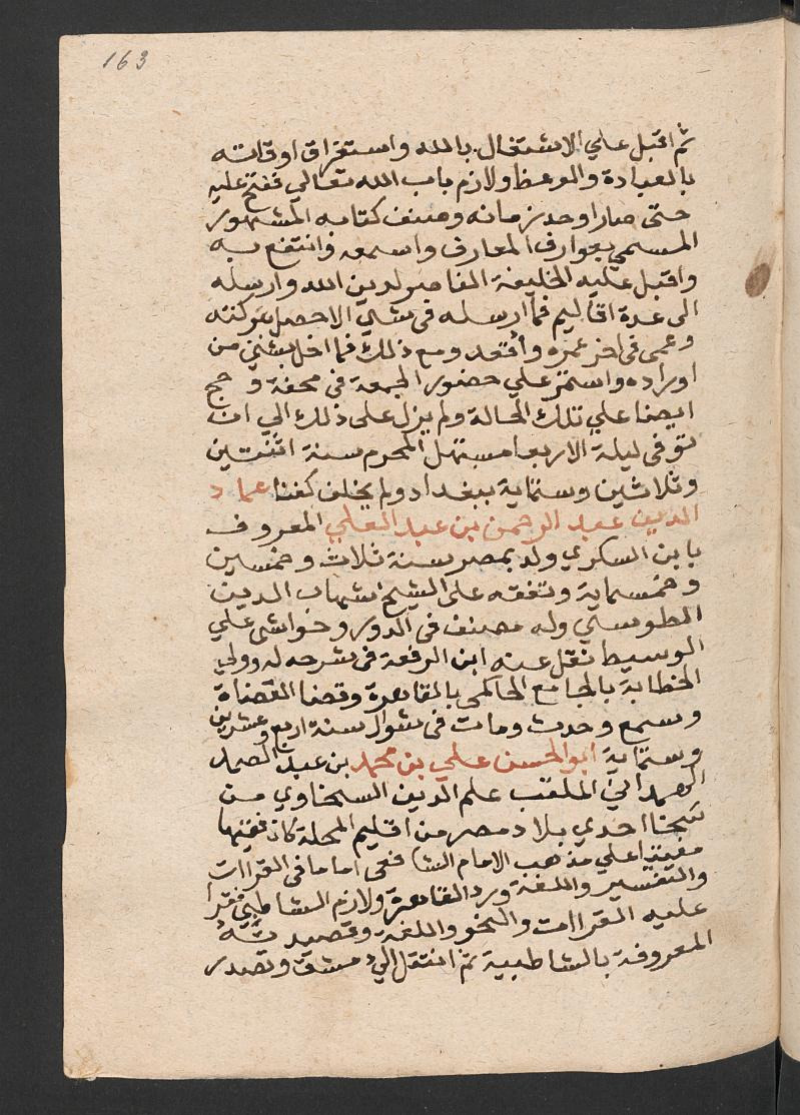 163
ثم اقبل علي الاشتغال بالله واستغراق اوقاته
بالعبادة والوعظ ولازم باب الله تعالي ففتح عليه
حتى صار اوحد زمانه وصنف كتابه المشهور
المسمي بعوارف المعارف واسمعه وانتفع به
واقبل عليه الخليفة الناصر لدين الله وارسله
الى عدة اقاليم فما ارسله في شي الا حصل ببركته
وعمى في اخر عمره وأقعد ومع ذلك فما اخل بشي من
اوراده واستمر علي حضور الجمعة في محفة وحج
ايضا علي تلك الحالة ولم يزل على ذلك الي ان
توفى ليلة الاربعا مستهل المحرم سنة اثنتين
وثلاثين وستماية ببغداد ولم يخلف كفنا عماد
الدين عبد الرحمن بن عبد العلي المعروف
بابن السكري ولد بمصر سنة ثلاث وخمسين
وخمسماية وتفقه على الشيخ شهاب الدين
الطوسي وله مصنف في الدور وحواشى علي
الوسيط نقل عنه ابن الرفعة في شرحه له وولي
الخطابة بالجامع الحاكمي بالقاهرة وقضا القضاة
وسمع وحدث ومات في شوال سنة اربع وعشرين
وستماية ابو الحسن علي بن محمد بن عبد الصمد
الهمداني الملقب علم الدين السخاوي من
سخا احدي بلاد مصر من اقليم المحلة كان فقيها
مفتيا علي مذهب الامام الشافعى اماما في القراات
والتفسير واللغة ورد القاهرة ولازم الشاطبي فقرا
عليه القراات والنحو واللغة وقصيدته
المعروفة بالشاطبية ثم انتقل الي دمشق وتصدر